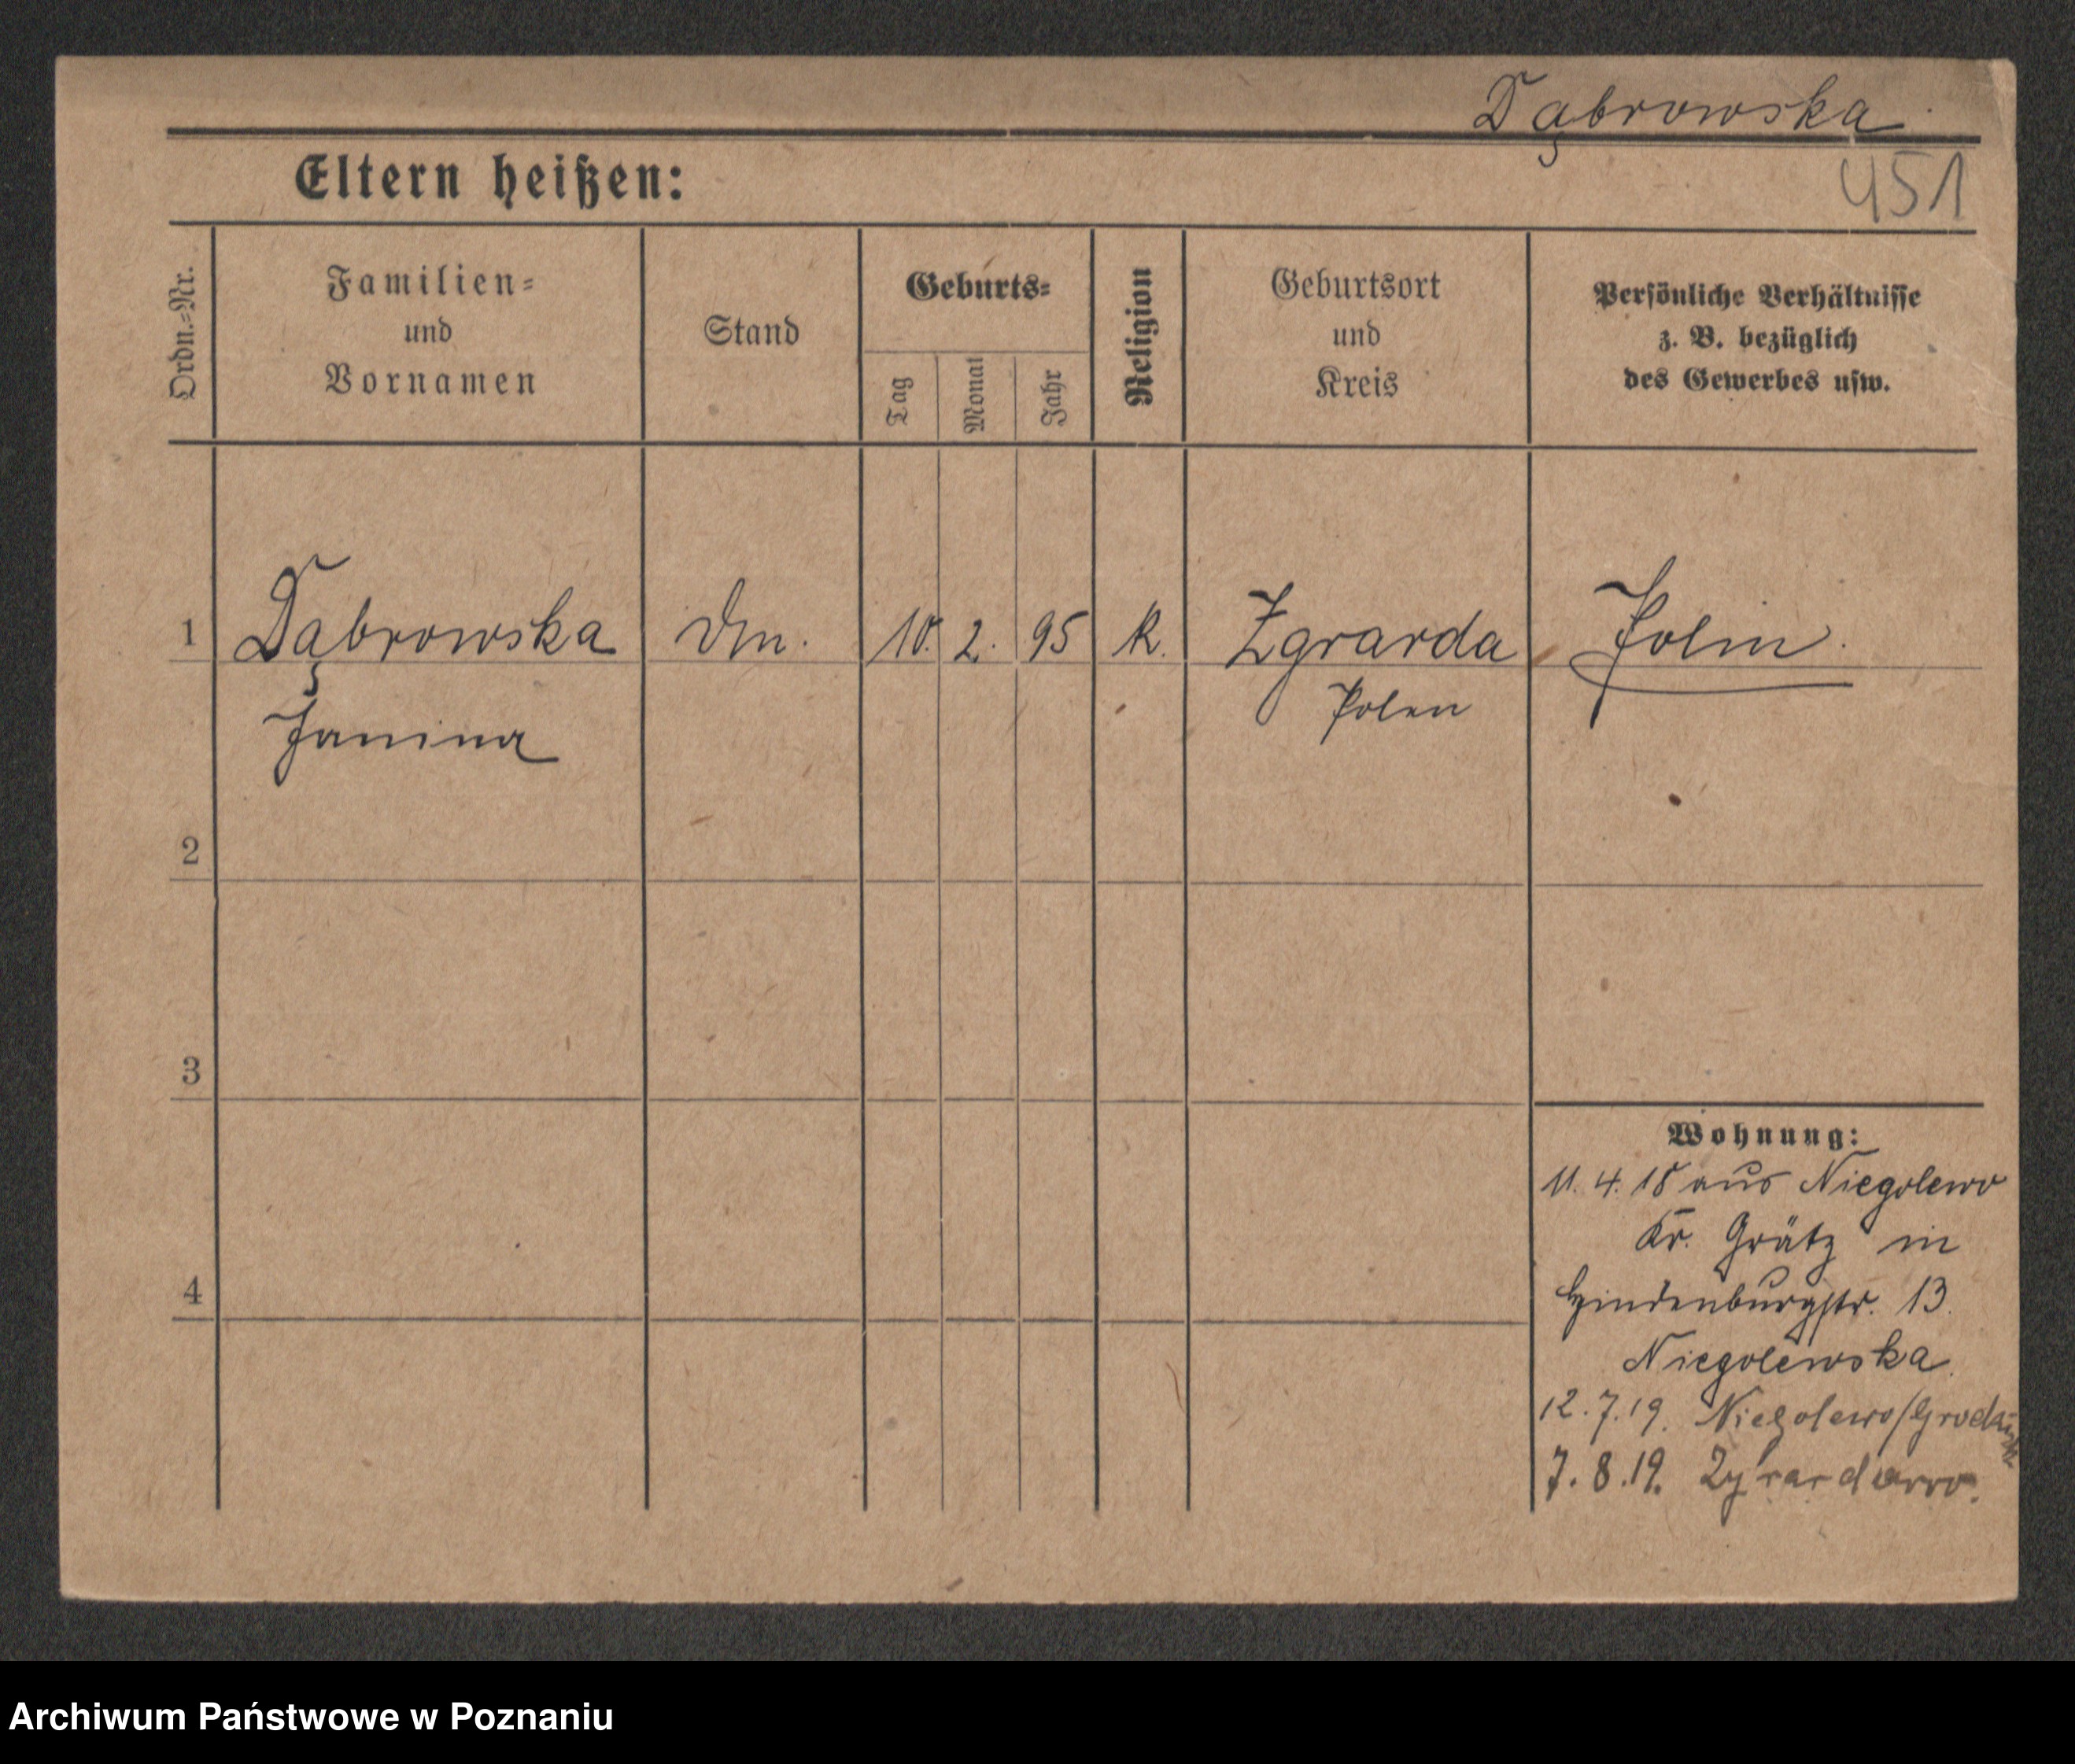 Dąbrowska
451
Eltern heißen:
Ordn.-Nr.
Familien-
und
Vornamen
Stand
Geburts-
Tag
Monat
Jahr
Religion
Geburtsort
und
Kreis
Persönliche Verhältnisse
z. B. bezüglich
des Gewerbes usw.
1 Dąbrowska 10. 2. 95 K. Zgrarda Polin.
Janina Polen
2
3
4
Wohnung:
11. 4. 18 aus Niegolewo
Kr. Grätz in
Hindenburgstr. 13.
Niegolewska.
12. 7. 19. Niegolewo/
7. 8. 19. Zyrardowo.
Archiwum Państwowe w Poznaniu